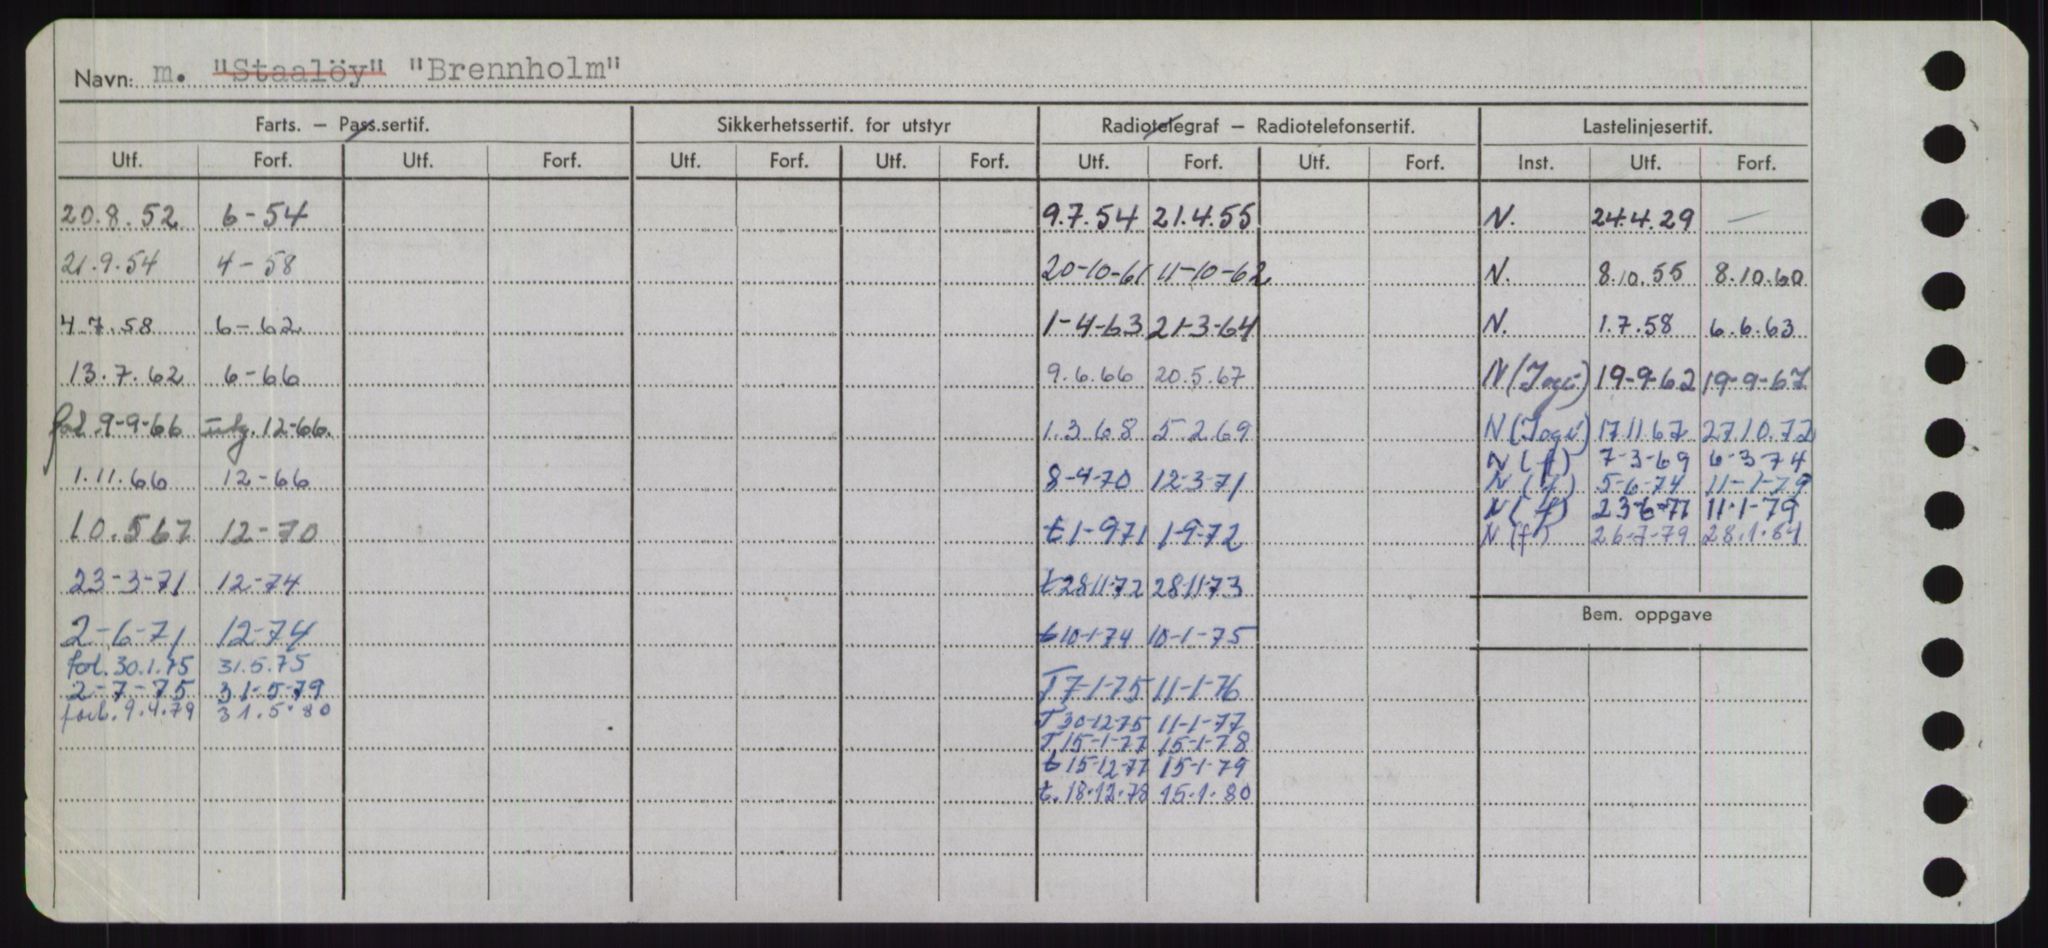 Navn: m. "Staalöy" "Brennholm"
Farts. – Pass.sertif. Sikkerhetssertif. for utstyr Radiotelegraf – Radiotelefonsertif. Lastelinjesertif.
Utf. Forf. Utf. Forf. Utf. Forf. Utf. Forf. Utf. Forf. Utf. Forf. Inst. Utf. Forf.
20.8.52 6-54 9.7.54 21.4.55 N. 24.4.29 —
21.9.54 4-58 20-10-61 11-10-62 N. 8.10.55 8.10.60
4.7.58 6-62 1-4-63 21-3-64 N. 1.7.58 6.6.63
13.7.62 6-66 9.6.66 20.5.67 N 19-9-62 19-9-67
9-9-66 utg. 12-66. 1.3.68 5.2.69 N 17.11.67 27.10.72
N (f) 7-3-69 6-3-74
1.11.66 12-66 8-4-70 12-3-71 N (f) 5-6-74 11-1-79
N (f) 23-6-77 11-1-79
10.5.67 12-70 t 1-9-71 1-9-72 N (f) 26-7-79 28.1.84
23-3-71 12-74 t 28.11.72 28.11.73
Bem. oppgave
2-6-71 12-74 t 10-1-74 10-1-75
fol. 30.1.75 31.5.75
2-7-75 31-5-79 T 7-1-75 11-1-76
forl. 9.4.79 31.5.80 T 30-12-75 11-1-77
T 15-1-77 15-1-78
t 15-12-77 15-1-79
t. 18.12.78 15.1.80